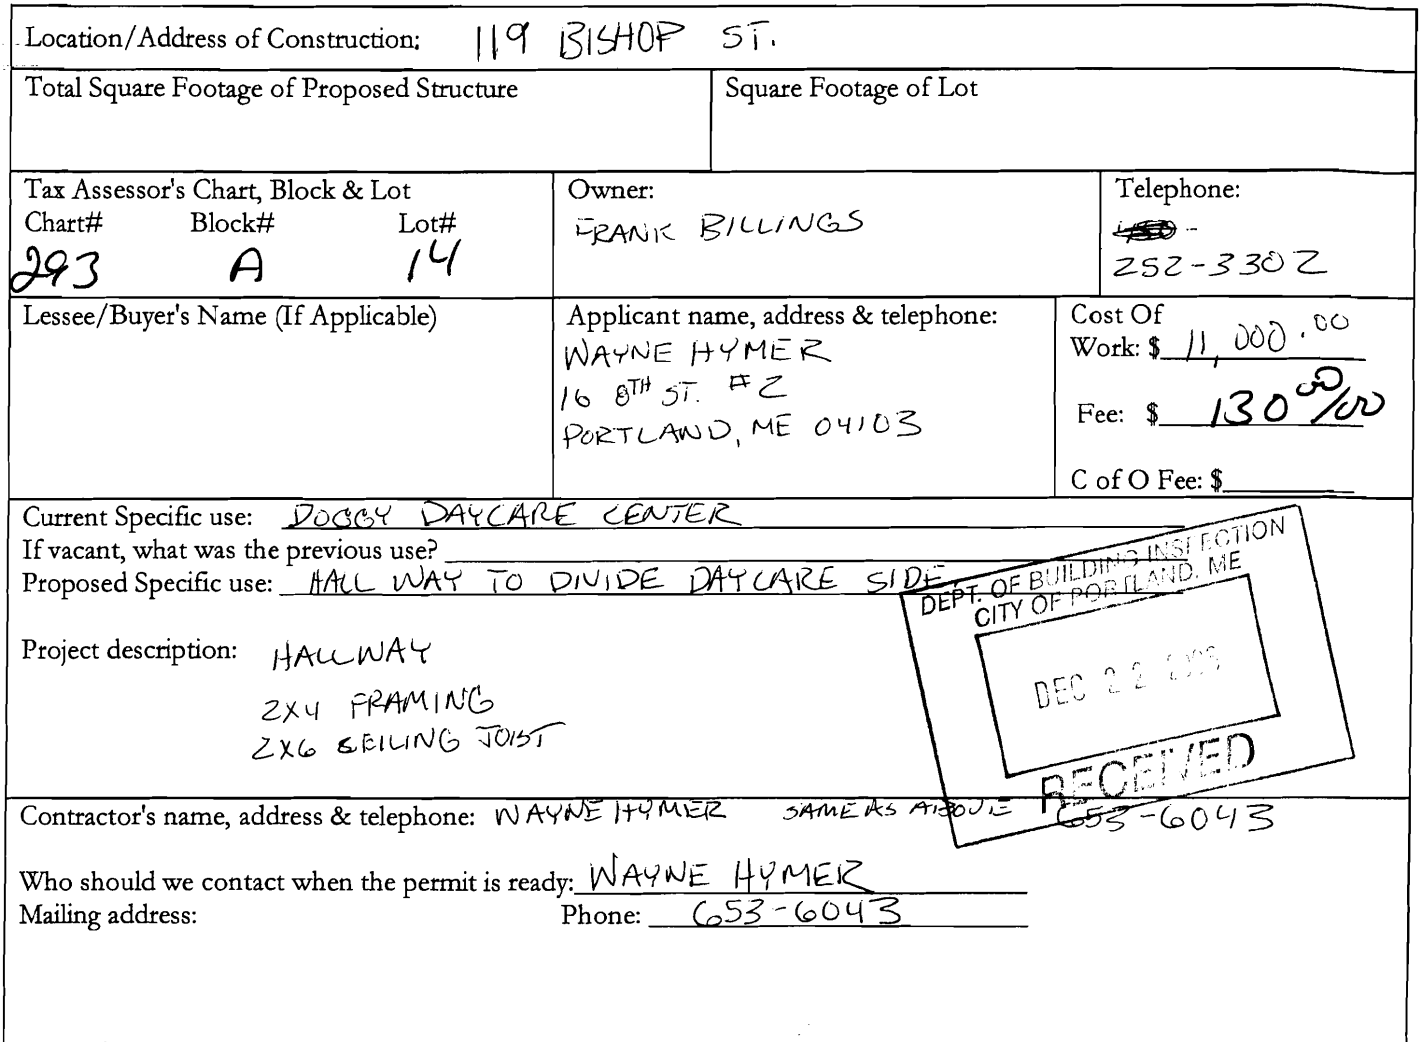 Location/Address of Construction: 119 BISHOP ST.
Total Square Footage of Proposed Structure
Square Footage of Lot
Tax Assessor's Chart, Block & Lot
Chart# Block# Lot#
293 A 14
Owner:
FRANK BILLINGS
Telephone:
252-3302
Lessee/Buyer's Name (If Applicable)
Applicant name, address & telephone:
WAYNE HYMER
16 8TH ST. #2
PORTLAND, ME 04103
Cost Of
Work: $ 11,000.00
Fee: $ 130 00/00
C of O Fee: $
Current Specific use: DOGGY DAYCARE CENTER
If vacant, what was the previous use?
Proposed Specific use: HALL WAY TO DIVIDE DAYCARE SIDE
DEPT. OF BUILDING INSPECTION
CITY OF PORTLAND, ME
DEC 22
RECEIVED
Project description: HALLWAY
2X4 FRAMING
2X6 SEILING JOIST
Contractor's name, address & telephone: WAYNE HYMER SAME AS ABOVE 653-6043
Who should we contact when the permit is ready: WAYNE HYMER
Mailing address: Phone: 653-6043